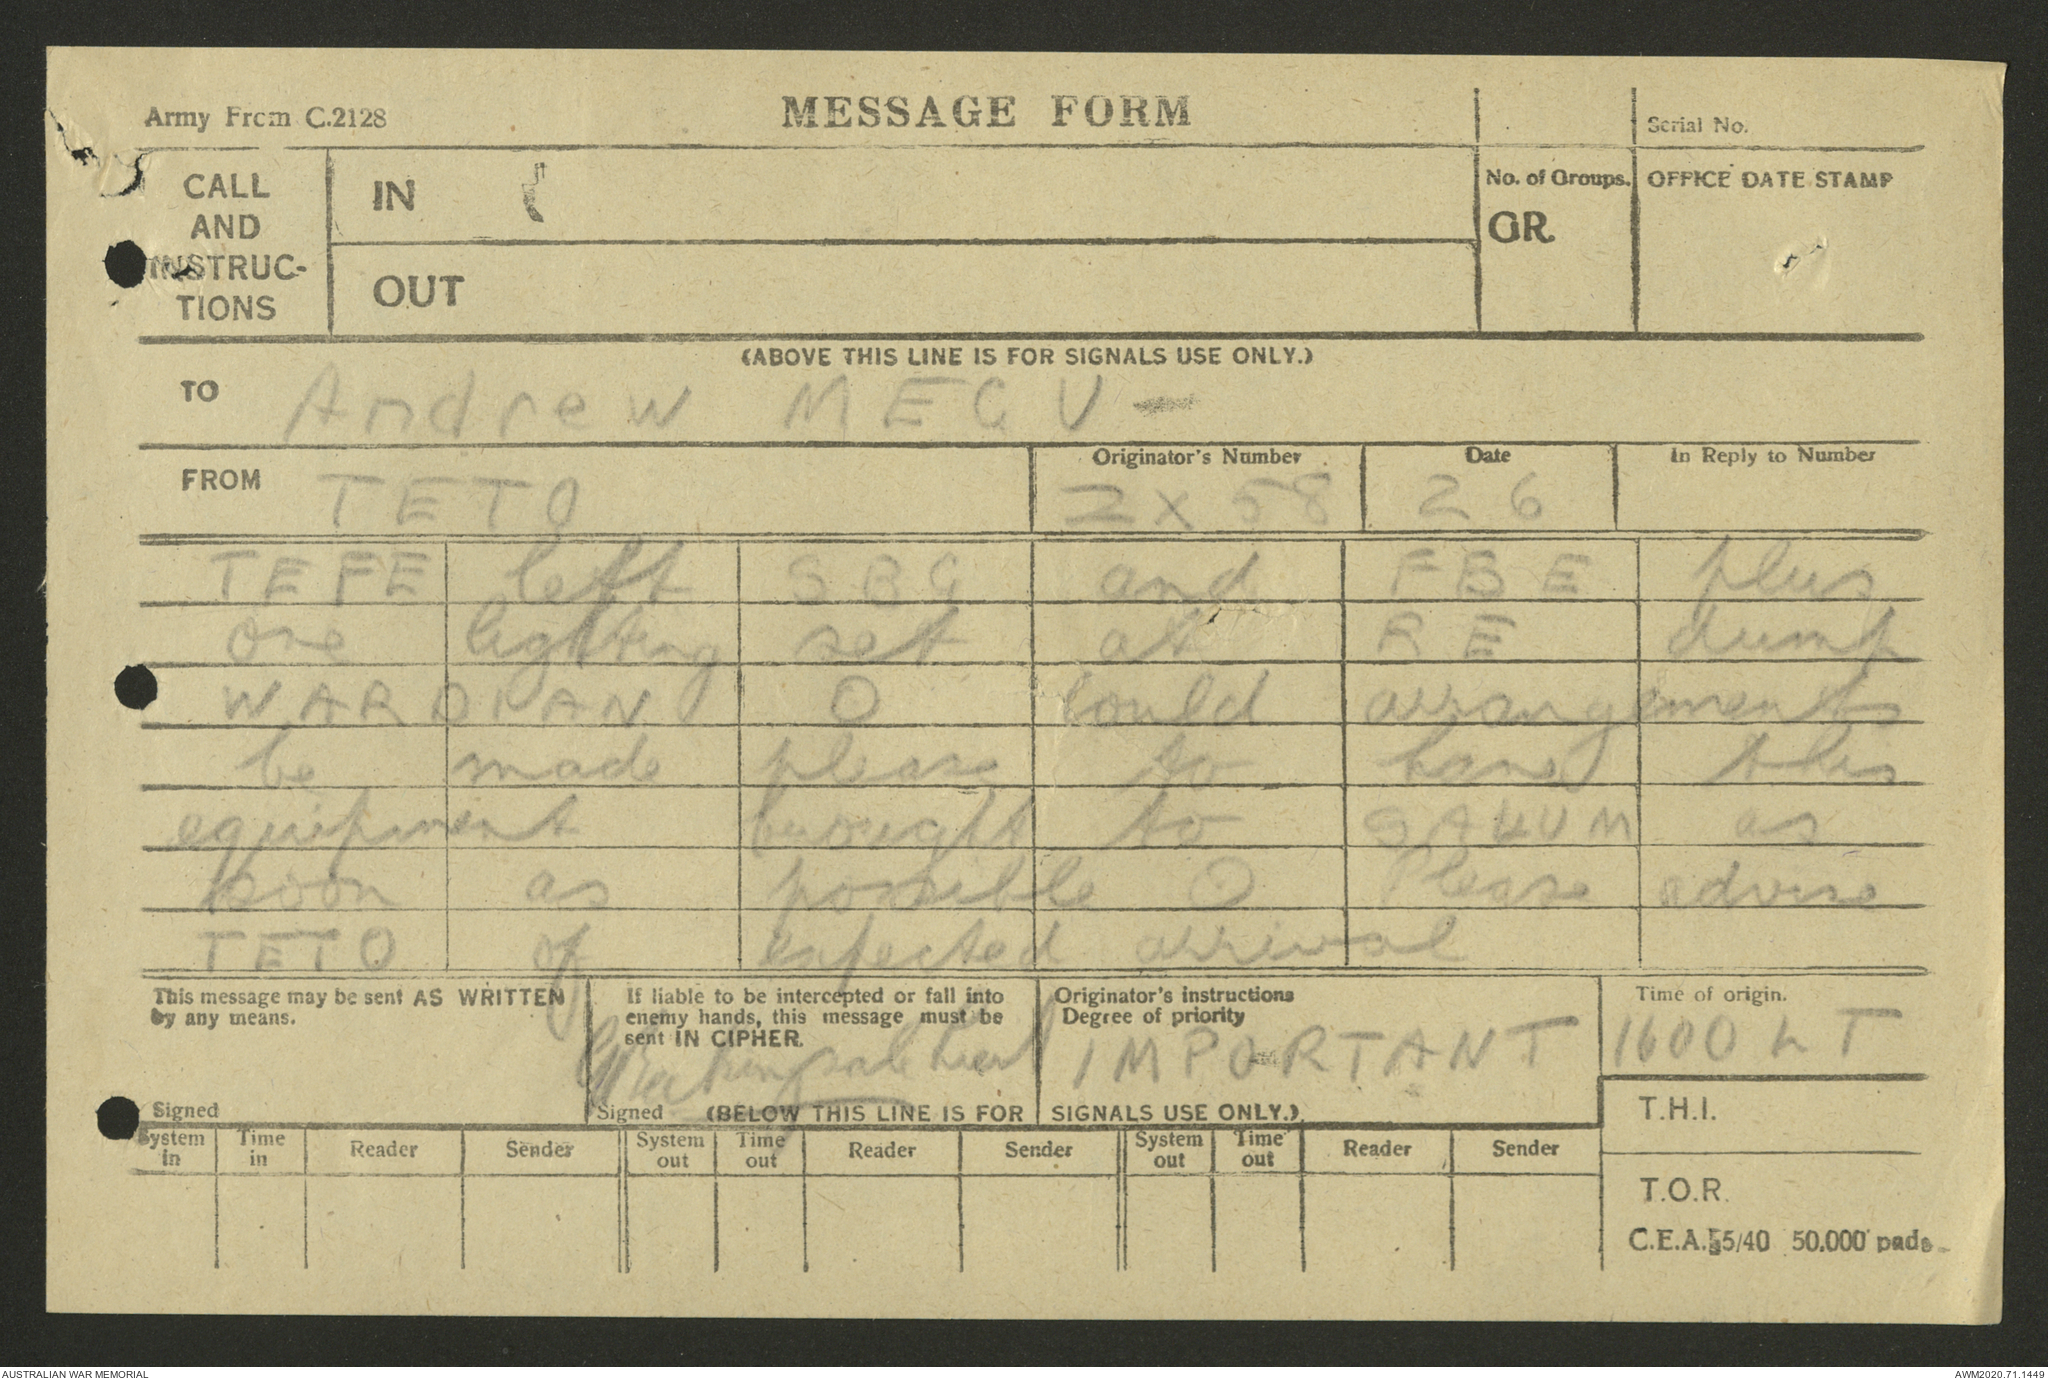 Army Frcm C.2128
MESSAGE FORM
Serial No.
CALL
AND
INSTRUC-
TIONS
IN
OUT
No. of Groups.
GR.
OFFICE DATE STAMP
(ABOVE THIS LINE IS FOR SIGNALS USE ONLY.)
TO Andrew MEGU -
FROM TETO
Originator's Number 2 X 58
Date 26
In Reply to Number
TEFE left SBG and FBE plus
one lighting set at RE dump
WARDIAN O Could arrangements
be made please to have this
equipment brought to SAKUM as
soon as possible O Please advise
TETO of expected arrival
This message may be sent AS WRITTEN
by any means.
If liable to be intercepted or fall into
enemy hands, this message must be
sent IN CIPHER.
Originator's instructions
Degree of priority
IMPORTANT
Time of origin.
1600 LT
Signed
Signed
(BELOW THIS LINE IS FOR SIGNALS USE ONLY.)
T.H.I.
System in Time in Reader Sender System out Time out Reader Sender System out Time out Reader Sender
T.O.R.
C.E.A. 5/40 50.000 pads
AUSTRALIAN WAR MEMORIAL
AWM2020.71.1449